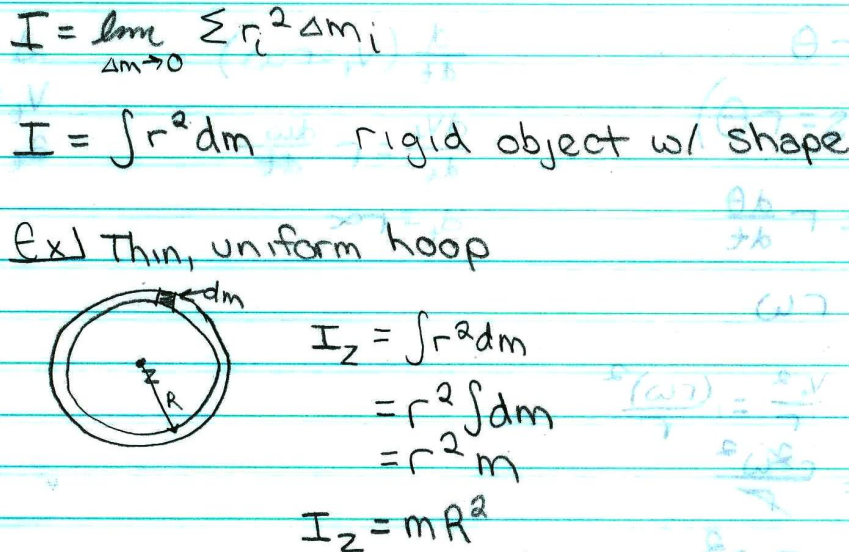 I = lim Σ rᵢ² Δmᵢ
Δm→0
I = ∫r²dm rigid object w/ shape
Ex) Thin, uniform hoop
dm
Z
R
I_z = ∫r²dm
= r² ∫dm
= r² m
I_z = mR²